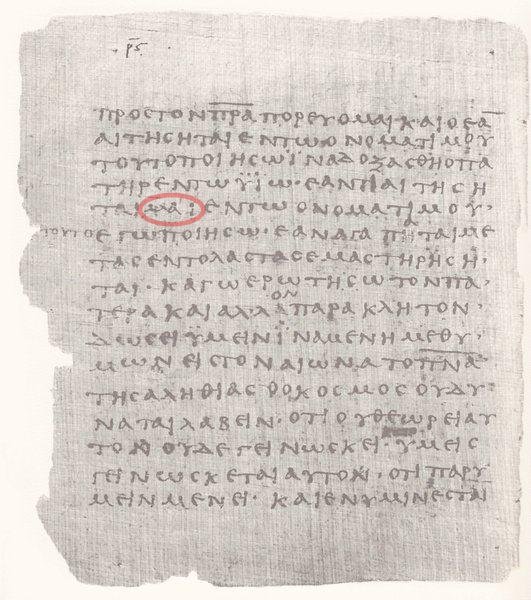 ρϛ
ΠΡΟϹΤΟΝΠΡΑΠΟΡΕΥΟΜΑΙΚΑΙΟΕΑ
ΑΙΤΗϹΗΤΑΙΕΝΤΩΟΝΟΜΑΤΙΜΟΥ
ΤΟΥΤΟΠΟΙΗϹΩΪΝΑΔΟΞΑϹΘΗΟΠΑ
ΤΗΡΕΝΤΩΫΪΩ·ΕΑΝΤΙΑΙΤΗϹΗ
ΤΑΙΜΑΙΕΝΤΩΟΝΟΜΑΤΙΜΟΥ·
ΤΟΥΤΟΕΓΩΠΟΙΗϹΩ·ΕΑΝΑΓΑΠΗΤΑΙΜΕ
ΤΑϹΕΝΤΟΛΑϹΤΑϹΕΜΑϹΤΗΡΗϹΗ·
ΤΑΙ·ΚΑΓΩΕΡΩΤΗϹΩΤΟΝΠΑ·
ΤΕΡΑΚΑΙΑΛΛΟΝΠΑΡΑΚΛΗΤΟΝ·
ΔΩϹΕΙΥΜΕΙΝΪΝΑΜΕΝΗΜΕΘΥ·
ΜΩΝΕΙϹΤΟΝΑΙΩΝΑΤΟΠΝΑ
ΤΗϹΑΛΗΘΙΑϹΟΟΚΟϹΜΟϹΟΥΔΥ·
ΝΑΤΑΙΛΑΒΕΙΝ·ΟΤΙΟΥΘΕΩΡΕΙΑΥ
ΤΟΝΟΥΔΕΓΕΙΝΩϹΚΕΙ·ΥΜΕΙϹ
ΓΕΙΝΩϹΚΕΤΑΙΑΥΤΟΝ·ΟΤΙΠΑΡΥ
ΜΕΙΝΜΕΝΕΙ·ΚΑΙΕΝΥΜΙΝΕϹΤΑΙ